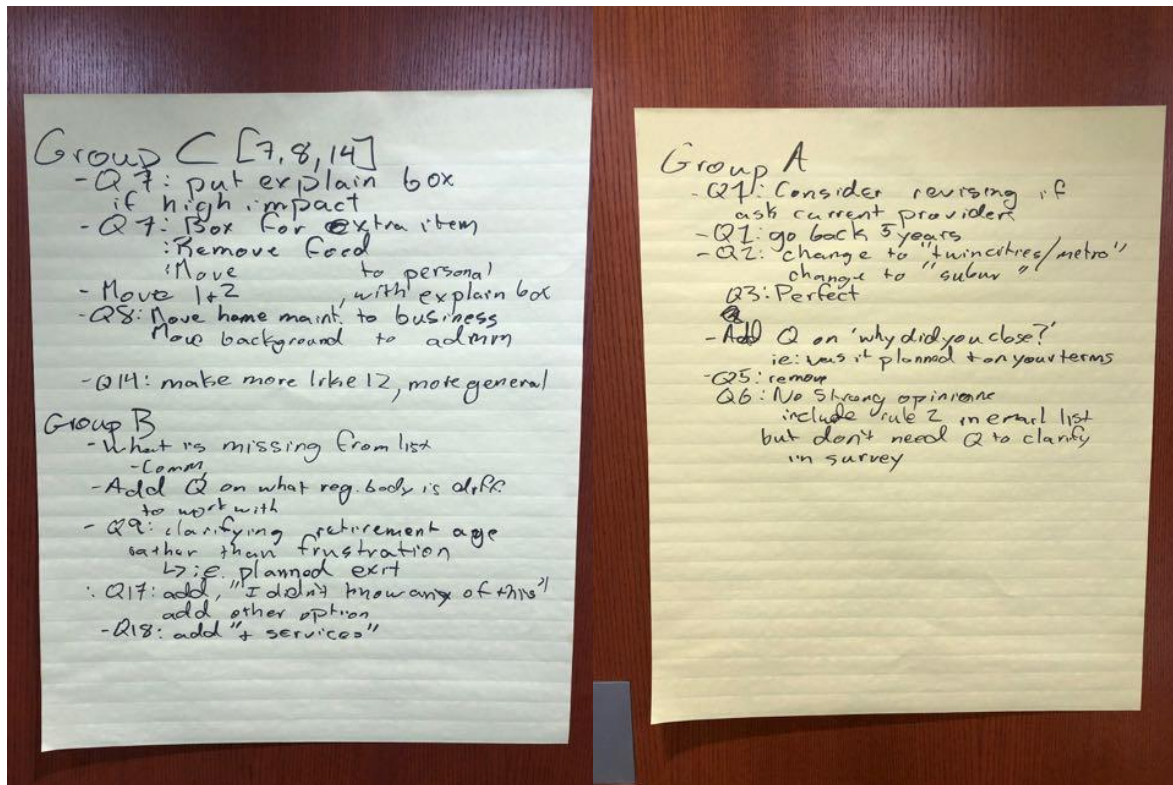 Group C [7, 8, 14]
- Q7: put explain box
if high impact
- Q7: Box for extra item
: Remove food
: Move to personal
- Move 1+2 , with explain box
- Q8: Move home maint. to business
Move background to admin
- Q14: make more like 12, more general
Group B
- What is missing from list
- Comm,
- Add Q on what reg. body is diff.
to work with
- Q9: clarifying retirement age
rather than frustration
↳ i.e. planned exit
: Q17: add, "I didn't know any of this"
add other option
- Q18: add "+ services"
Group A
- Q1: Consider revising if
ask current providers
- Q1: go back 5 years
- Q2: change to "twincities/metro"
change to "subur "
Q3: Perfect
- Add Q on 'why did you close?'
ie: was it planned + on your terms
- Q25: remove
Q6: No strong opinions
include rule 2 in email list
but don't need Q to clarify
in survey